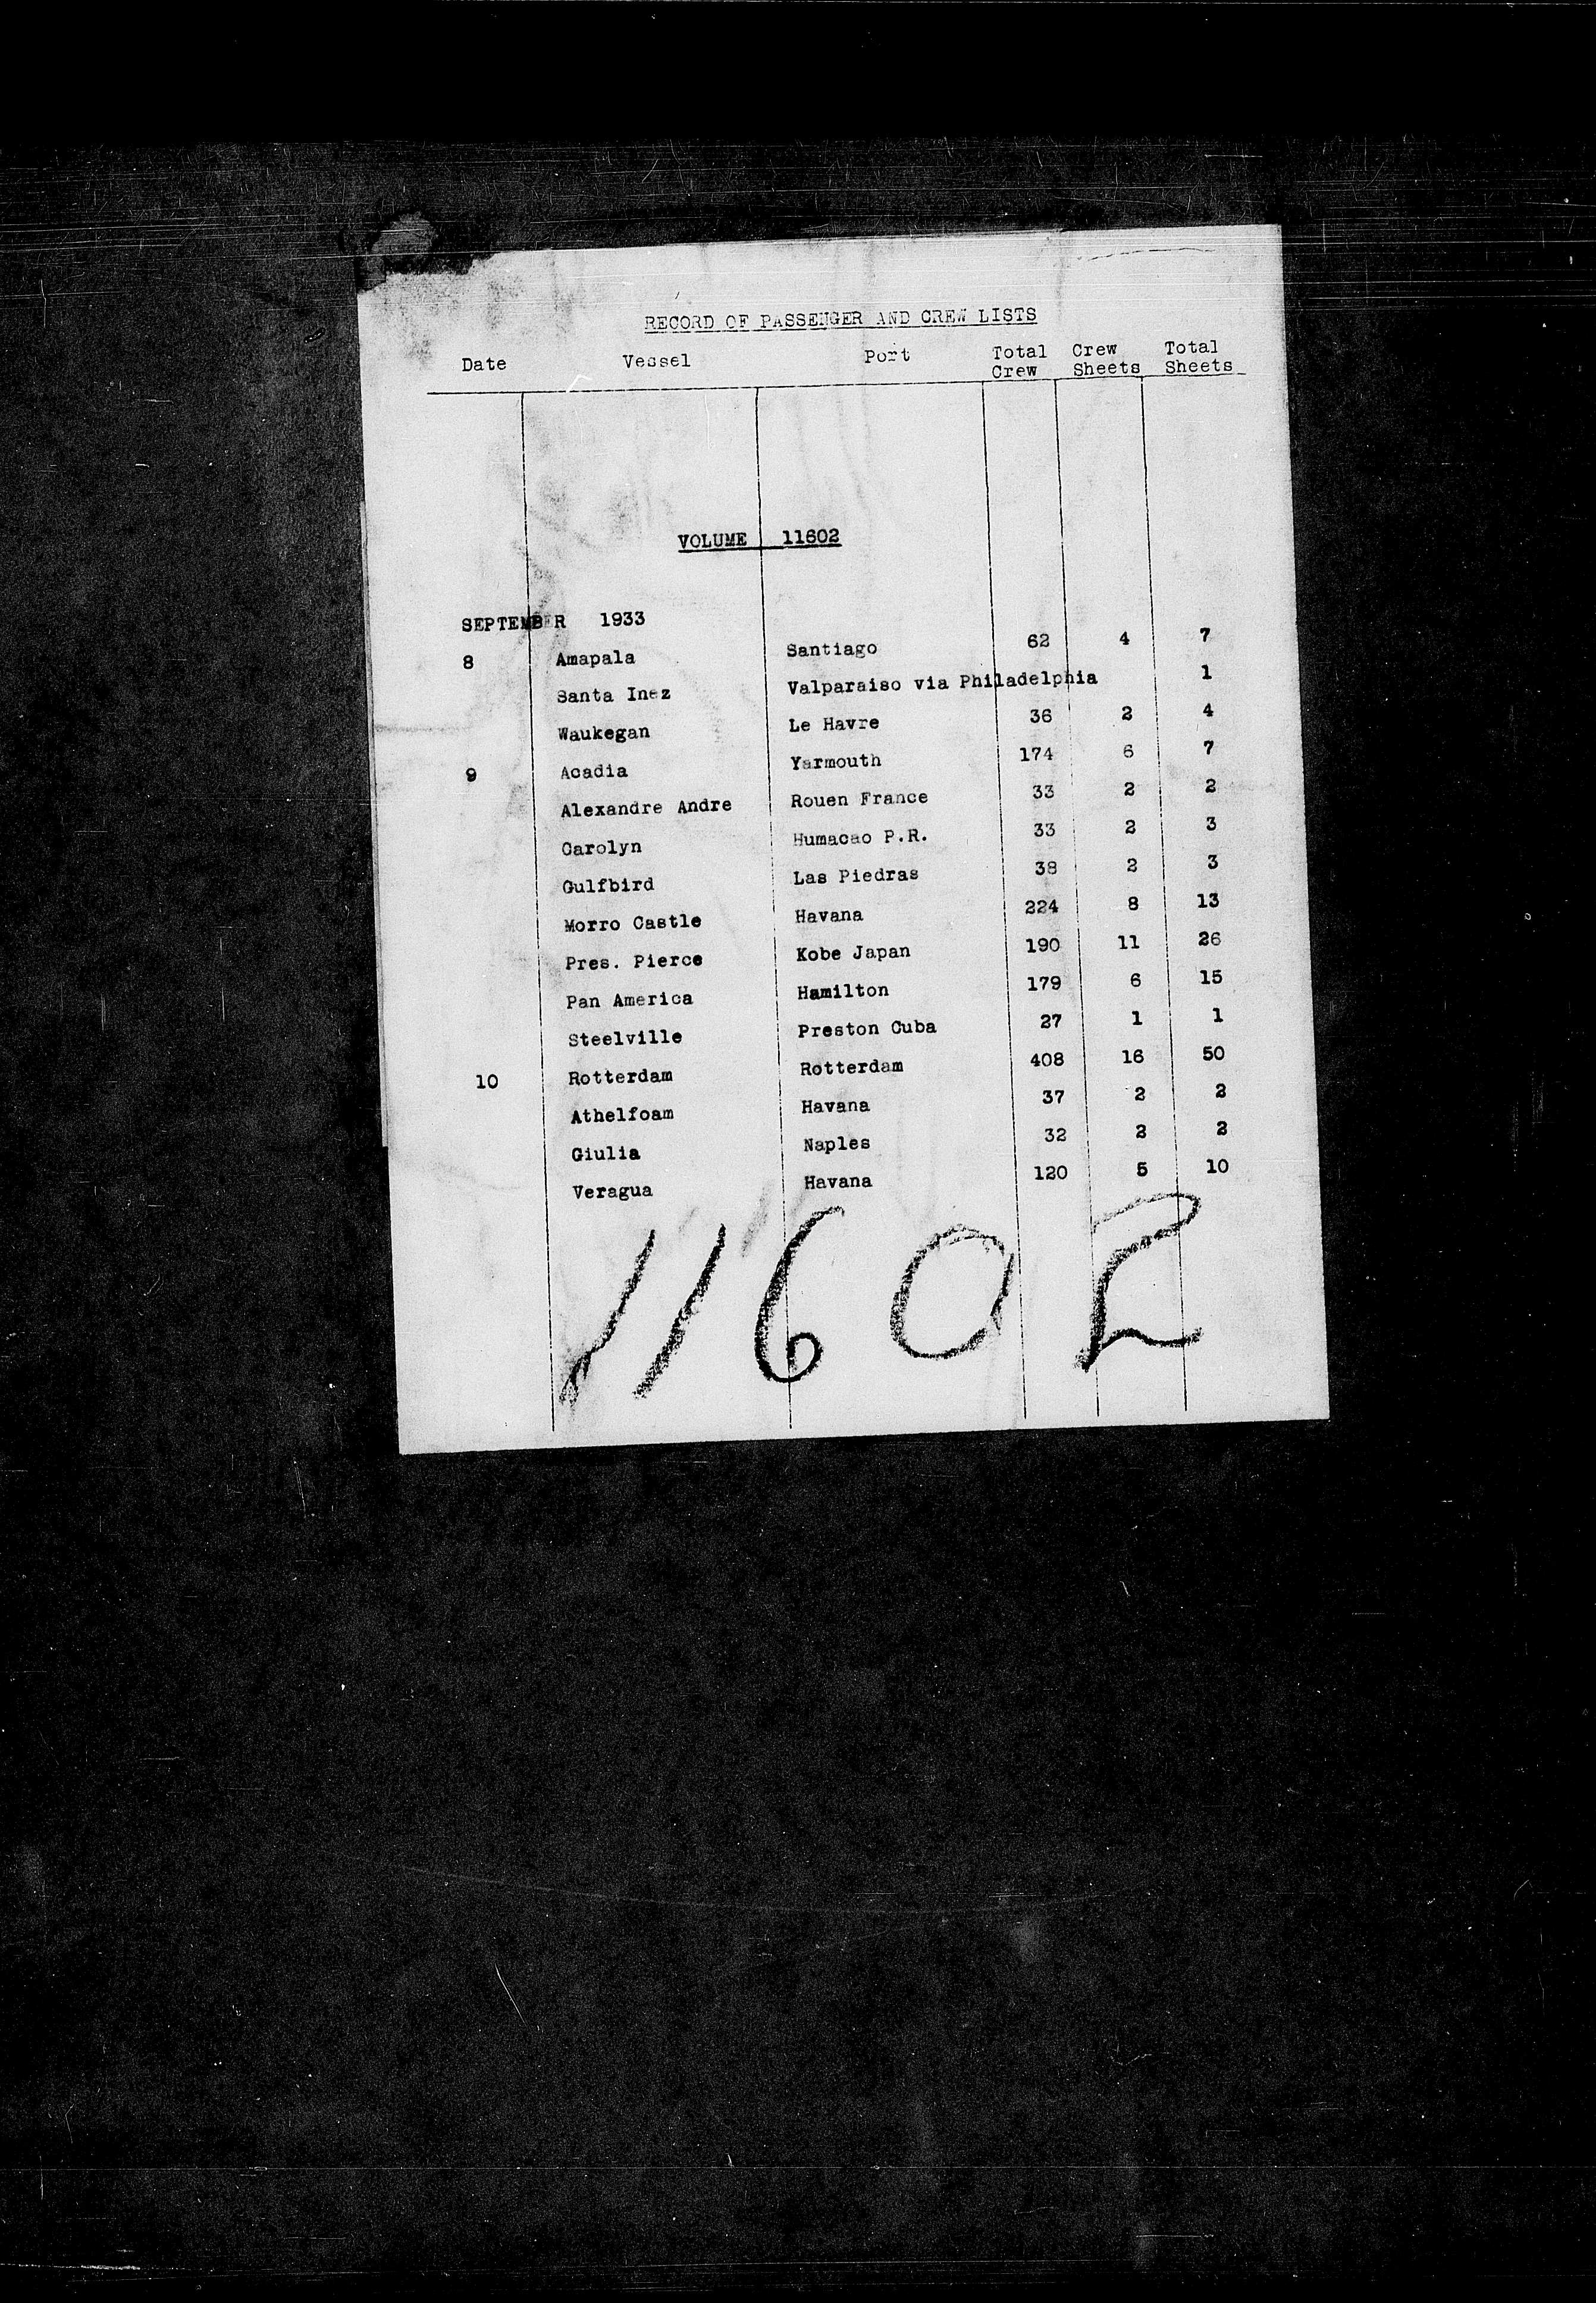 RECORD OF PASSENGER AND CREW LISTS
Date Vessel Port Total Crew Crew Sheets Total Sheets
VOLUME 11602
SEPTEMBER 1933
8 Amapala Santiago 62 4 7
Santa Inez Valparaiso via Philadelphia 1
Waukegan Le Havre 36 2 4
9 Acadia Yarmouth 174 6 7
Alexandre Andre Rouen France 33 2 2
Carolyn Humacao P.R. 33 2 3
Gulfbird Las Piedras 38 2 3
Morro Castle Havana 224 8 13
Pres. Pierce Kobe Japan 190 11 26
Pan America Hamilton 179 6 15
Steelville Preston Cuba 27 1 1
10 Rotterdam Rotterdam 408 16 50
Athelfoam Havana 37 2 2
Giulia Naples 32 2 2
Veragua Havana 120 5 10
11602